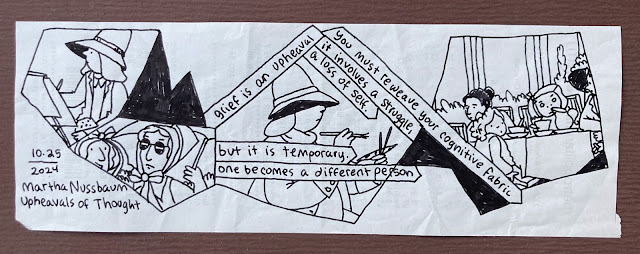 grief is an upheaval
it involves a struggle,
a loss of self.
You must reweave your cognitive fabric
but it is temporary.
one becomes a different person
10.25
2024
Martha Nussbaum
Upheavals of Thought